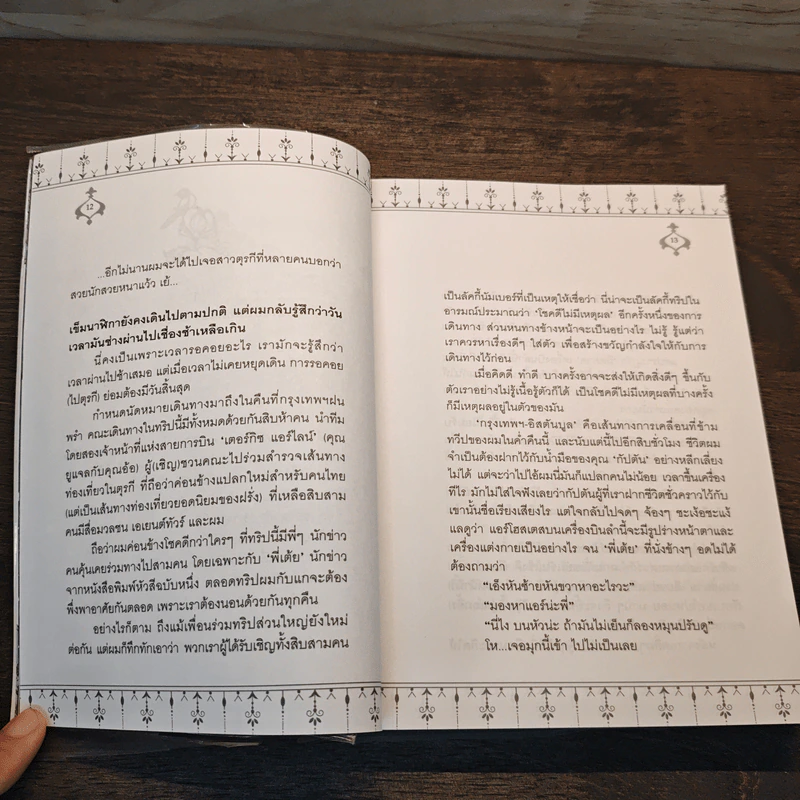 12
...อีกไม่นานผมจะได้ไปเจอสาวตุรกีที่หลายคนบอกว่า
สวยนักสวยหนาแว้ว เย้...
เข็มนาฬิกายังคงเดินไปตามปกติ แต่ผมกลับรู้สึกว่าวัน
เวลามันช่างผ่านไปเชื่องช้าเหลือเกิน
นี่คงเป็นเพราะเวลารอคอยอะไร เรามักจะรู้สึกว่า
เวลาผ่านไปช้าเสมอ แต่เมื่อเวลาไม่เคยหยุดเดิน การรอคอย
(ไปตุรกี) ย่อมต้องมีวันสิ้นสุด
กำหนดนัดหมายเดินทางมาถึงในคืนที่กรุงเทพฯฝน
พรำ คณะเดินทางในทริปนี้มีทั้งหมดด้วยกันสิบห้าคน นำทีม
โดยสองเจ้าหน้าที่แห่งสายการบิน ‘เตอร์กิช แอร์ไลน์’ (คุณ
ยูแจลกับคุณอ้อ) ผู้(เชิญ)ชวนคณะไปร่วมสำรวจเส้นทาง
ท่องเที่ยวในตุรกี ที่ถือว่าค่อนข้างแปลกใหม่สำหรับคนไทย
(แต่เป็นเส้นทางท่องเที่ยวยอดนิยมของฝรั่ง) ที่เหลือสิบสาม
คนมีสื่อมวลชน เอเยนต์ทัวร์ และผม
ถือว่าผมค่อนข้างโชคดีกว่าใครๆ ที่ทริปนี้มีพี่ๆ นักข่าว
คนคุ้นเคยร่วมทางไปสามคน โดยเฉพาะกับ ‘พี่เต้ย’ นักข่าว
จากหนังสือพิมพ์หัวสีฉบับหนึ่ง ตลอดทริปผมกับแกจะต้อง
พึ่งพาอาศัยกันตลอด เพราะเราต้องนอนด้วยกันทุกคืน
อย่างไรก็ตาม ถึงแม้เพื่อนร่วมทริปส่วนใหญ่ยังใหม่
ต่อกัน แต่ผมก็ทึกทักเอาว่า พวกเราผู้ได้รับเชิญทั้งสิบสามคน
13
เป็นลัคกี้นัมเบอร์ที่เป็นเหตุให้เชื่อว่า นี่น่าจะเป็นลัคกี้ทริปใน
อารมณ์ประมาณว่า ‘โชคดีไม่มีเหตุผล’ อีกครั้งหนึ่งของการ
เดินทาง ส่วนหนทางข้างหน้าจะเป็นอย่างไร ไม่รู้ รู้แต่ว่า
เราควรหาเรื่องดีๆ ใส่ตัว เพื่อสร้างขวัญกำลังใจให้กับการ
เดินทางไว้ก่อน
เมื่อคิดดี ทำดี บางครั้งอาจจะส่งให้เกิดสิ่งดีๆ ขึ้นกับ
ตัวเราอย่างไม่รู้เนื้อรู้ตัวก็ได้ เป็นโชคดีไม่มีเหตุผลที่บางครั้ง
ก็มีเหตุผลอยู่ในตัวของมัน
‘กรุงเทพฯ-อิสตันบูล’ คือเส้นทางการเคลื่อนที่ข้าม
ทวีปของผมในค่ำคืนนี้ และนับแต่นี้ไปอีกสิบชั่วโมง ชีวิตผม
จำเป็นต้องฝากไว้กับน้ำมือของคุณ ‘กัปตัน’ อย่างหลีกเลี่ยง
ไม่ได้ แต่จะว่าไปไอ้ผมนี่มันก็แปลกคนไม่น้อย เวลาขึ้นเครื่อง
ทีไร มักไม่ใส่ใจฟังเลยว่ากัปตันผู้ที่เราฝากชีวิตชั่วคราวไว้กับ
เขานั้นชื่อเรียงเสียงไร แต่ใจกลับไปจดๆ จ้องๆ ชะเง้อชะแง้
แลดูว่า แอร์โฮสเตสบนเครื่องบินลำนี้จะมีรูปร่างหน้าตาและ
เครื่องแต่งกายเป็นอย่างไร จน ‘พี่เต้ย’ ที่นั่งข้างๆ อดไม่ได้
ต้องถามว่า
“เอ็งหันซ้ายหันขวาหาอะไรวะ”
“มองหาแอร์น่ะพี่”
“นี่ไง บนหัวน่ะ ถ้ามันไม่เย็นก็ลองหมุนปรับดู”
โห...เจอมุกนี้เข้า ไปไม่เป็นเลย